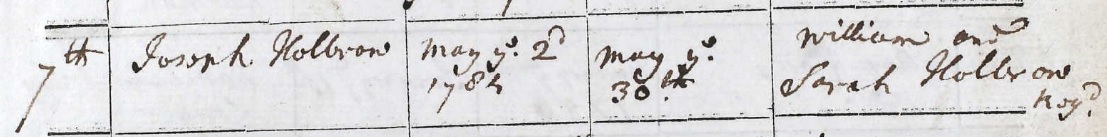 7th Joseph Holbrow May ye. 2d May ye. William and
1784 30th. Sarah Holbrow
Regd.